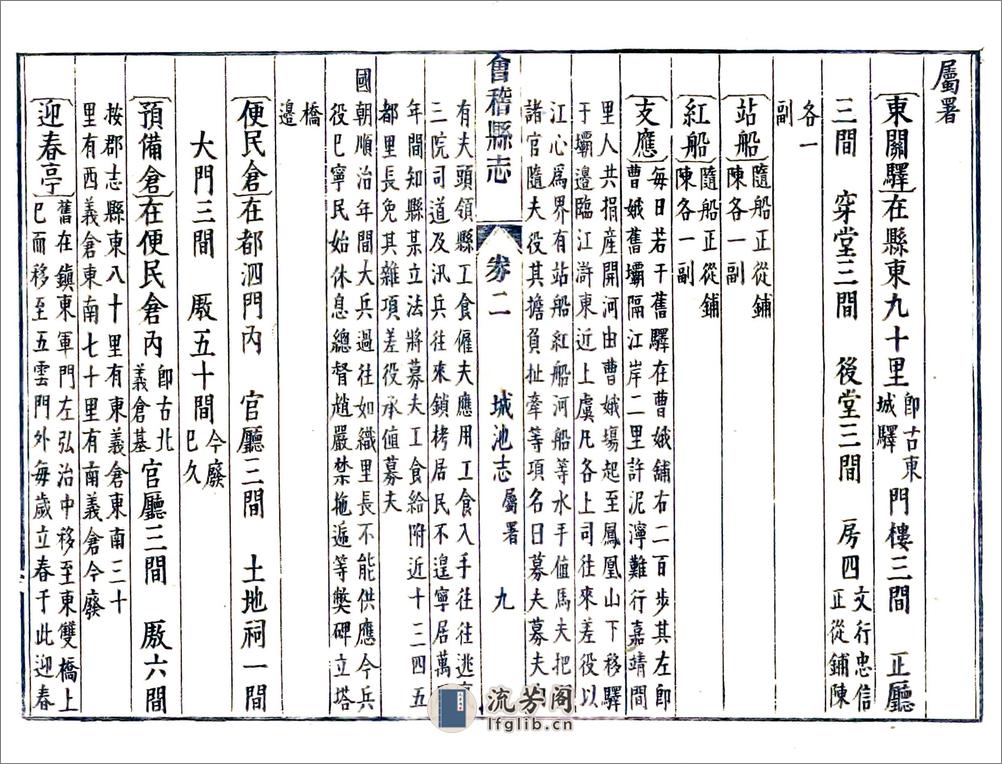 屬署
東關驛在縣東九十里即古東城驛門樓三間 正廳
三間 穿堂三間 後堂三間 房四文行忠信正從鋪陳
各一
副
站船隨船正從鋪
陳各一副
紅船隨船正從鋪
陳各一副
支應每日若干舊驛在曹娥鋪右二百步其左即
曹娥舊壩隔江岸二里許泥濘難行嘉靖間
里人共捐產開河由曹娥塲起至鳳凰山下移驛
于壩邊臨江滸東近上虞凡各上司往來差役以
江心爲界有站船紅船河船等水手值馬夫把
諸官隨夫役其擔負扯牽等項名曰募夫募夫
會稽縣志 卷二 城池志 屬署 九
有夫頭領縣工食僱夫應用工食入手往往逃
三院司道及汛兵往來鎖拷居民不遑寧居萬
年間知縣某立法將募夫工食給附近十三四五
都里長免其雜項差役承值募夫
國朝順治年間大兵過往如織里長不能供應今兵
役巳寧民始休息總督趙嚴禁拖遞等獘碑立塔
橋
邊
便民倉在都泗門內 官廳三間 土地祠一間
大門三間 厫五十間今廢巳久
預備倉在便民倉內即古北義倉基官廳三間 厫六間
按郡志縣東八十里有東義倉東南三十
里有西義倉東南七十里有南義倉今廢
迎春亭舊在鎮東軍門左弘治中移至東雙橋上
巳而移至五雲門外每歲立春于此迎春
流芳阁
lfglib.cn